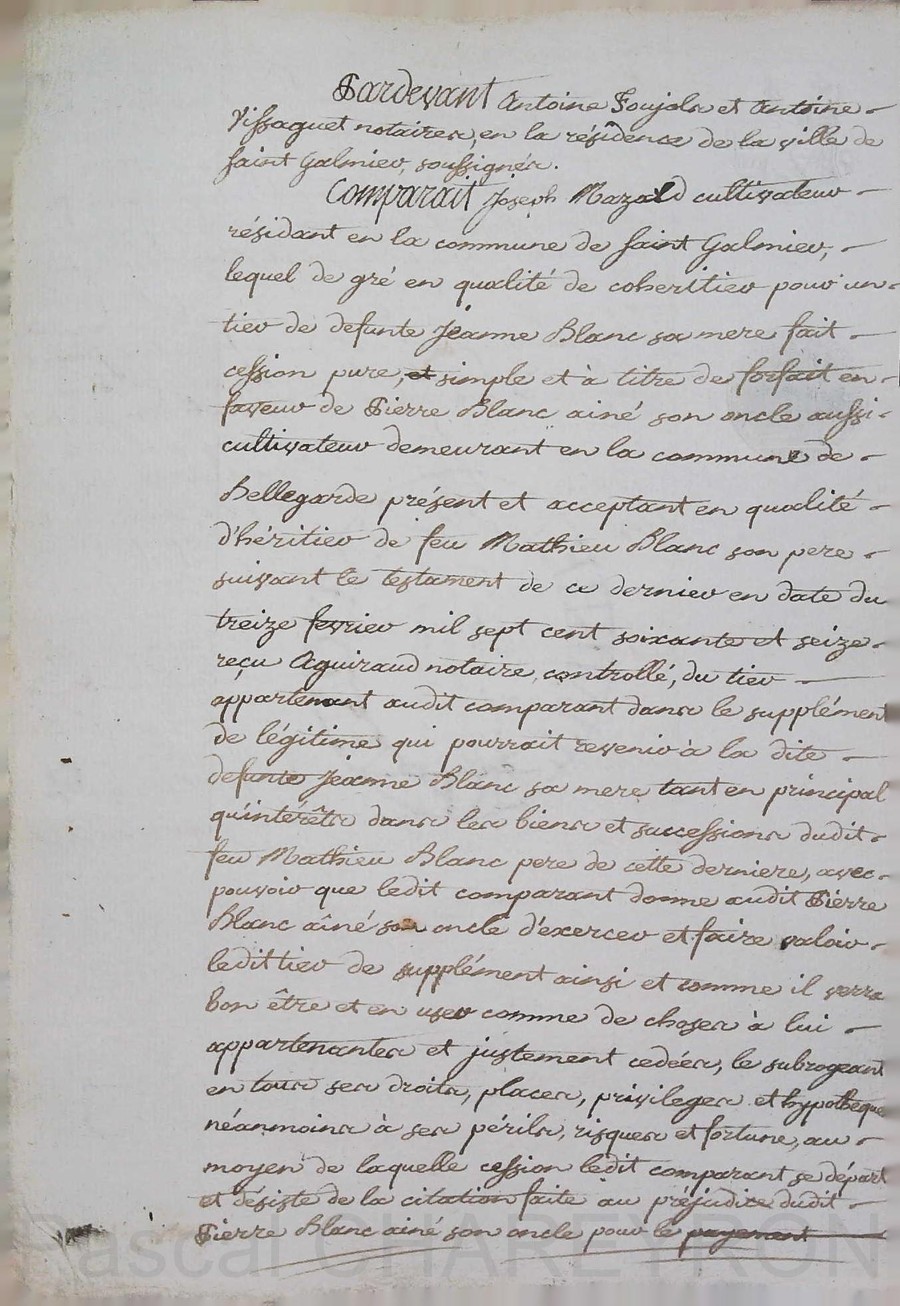 Pardevant Antoine Foujols et Antoine
Vissaguet notaires, en la résidence de la ville de
Saint Galmier, soussignés.
Comparait Joseph Mazard cultivateur
résidant en la commune de Saint Galmier,
lequel de gré en qualité de coheritier pour un
tier de defunte Jeanne Blanc sa mere fait
cession pure, et simple et à titre de forfait en
faveur de Pierre Blanc ainé son oncle aussi
cultivateur demeurant en la commune de
Bellegarde présent et acceptant en qualité
d'héritier de feu Mathieu Blanc son pere
suivant le testament de ce dernier en date du
treize fevrier mil sept cent soixante et seize
reçu Aguiraud notaire, controllé, du tier
appartenant audit comparant dans le supplément
de légitime qui pourrait revenir à la dite
defunte Jeanne Blanc sa mere tant en principal
qu'intérêts dans les biens et successions dudit
feu Mathieu Blanc pere de cette derniere, avec
pouvoir que ledit comparant donne audit Pierre
Blanc aîné son oncle d'exercer et faire valoir
ledit tier de supplément ainsi et comme il verra
bon être et en user comme de choses à lui
appartenantes et justement cedées, le subrogeant
en tous ses droits, places, privileges et hypotheque
néanmoins à ses périls, risques et fortune, au
moyen de laquelle cession ledit comparant se départ
et désiste de la citation faite au préjudice dudit
Pierre Blanc ainé son oncle pour le payement
Pascal CHAREYRON